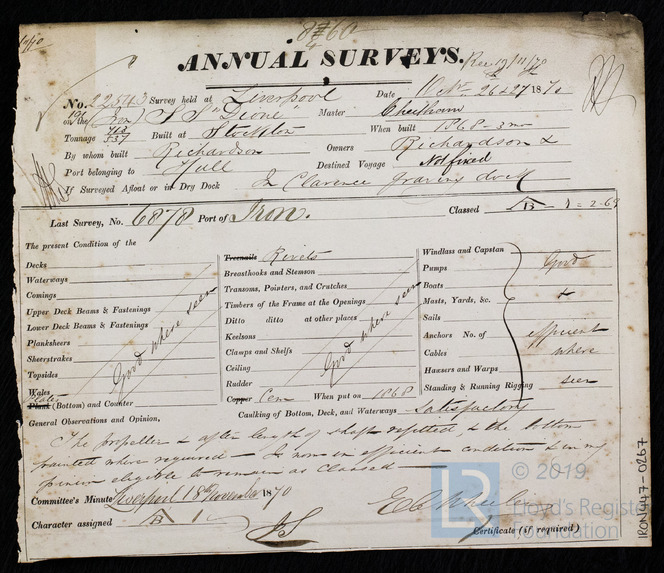 8/4 60
ANNUAL SURVEYS. Rec 19/11/70
No. 22543 Survey held at Liverpool Date Octr 26 & 27 1870
on the (Iron) SS "Dione" Master Cheetham
Tonnage 713 537 Built at Stockton When built 1868 - 3 mo
By whom built Richardson Owners Richardson &
Port belonging to Hull Destined Voyage Not fixed
If Surveyed Afloat or in Dry Dock In Clarence graving dock
Last Survey, No. 6878 Port of Iron. Classed A B 1 - 2-69
The present Condition of the
Decks
Waterways
Comings
Upper Deck Beams & Fastenings
Lower Deck Beams & Fastenings
Planksheers
Sheerstrakes
Topsides
Wales
Plates
Plank (Bottom) and Counter
Good where seen
Treenails Rivets
Breasthooks and Stemson
Transoms, Pointers, and Crutches
Timbers of the Frame at the Openings
Ditto ditto at other places
Keelsons
Clamps and Shelfs
Ceiling
Rudder
Good where seen
Copper Cem When put on 1868
Windlass and Capstan
Pumps Good
Boats
Masts, Yards, &c. &
Sails
Anchors No. of efficient
Cables where
Hawsers and Warps
Standing & Running Rigging seen
Caulking of Bottom, Deck, and Waterways Satisfactory
General Observations and Opinion,
The propeller & after length of shaft refitted & the bottom
painted where required - Is now in efficient condition & in my
opinion eligible to remain as classed
Committee's Minute Liverpool 18th November 1870
Character assigned A B 1
Certificate (if required)
© 2019
Lloyd's Register
Foundation
IRON947-0267